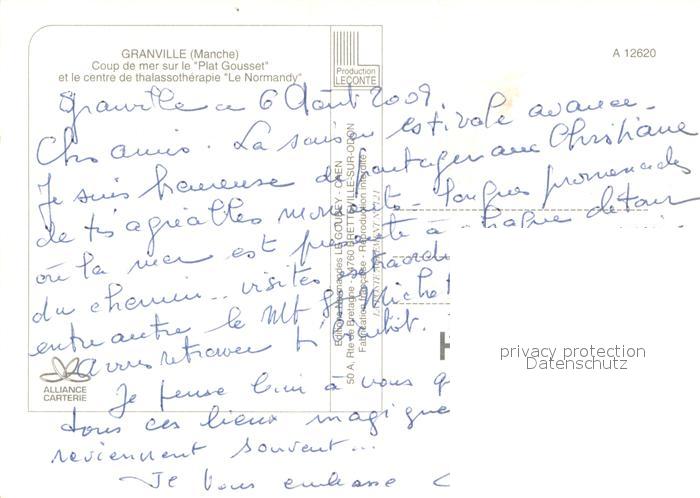 GRANVILLE (Manche)
Coup de mer sur le "Plat Gousset"
et le centre de thalassothérapie "Le Normandy"
Production
LECONTE
A 12620
Granville ce 6 Août 2009
Chers amis. La saison estivale avance.
Je suis heureuse de partager avec Christiane
de très agréables moments - longues promenades
où la mer est présente à chaque détour
du chemin... visites
entre autre le Mt St Michel
vous retrouver bientôt.
Je pense bien à vous q
tous ces lieux magique
reviennent souvent...
Je vous embrasse
Editions Normandes LE GOUBEY - CAEN
50 A, Rte de Bretagne - 14760 BRETTEVILLE-SUR-ODON
Fabrication française - Reproduction interdite
ALLIANCE
CARTERIE
privacy protection
Datenschutz